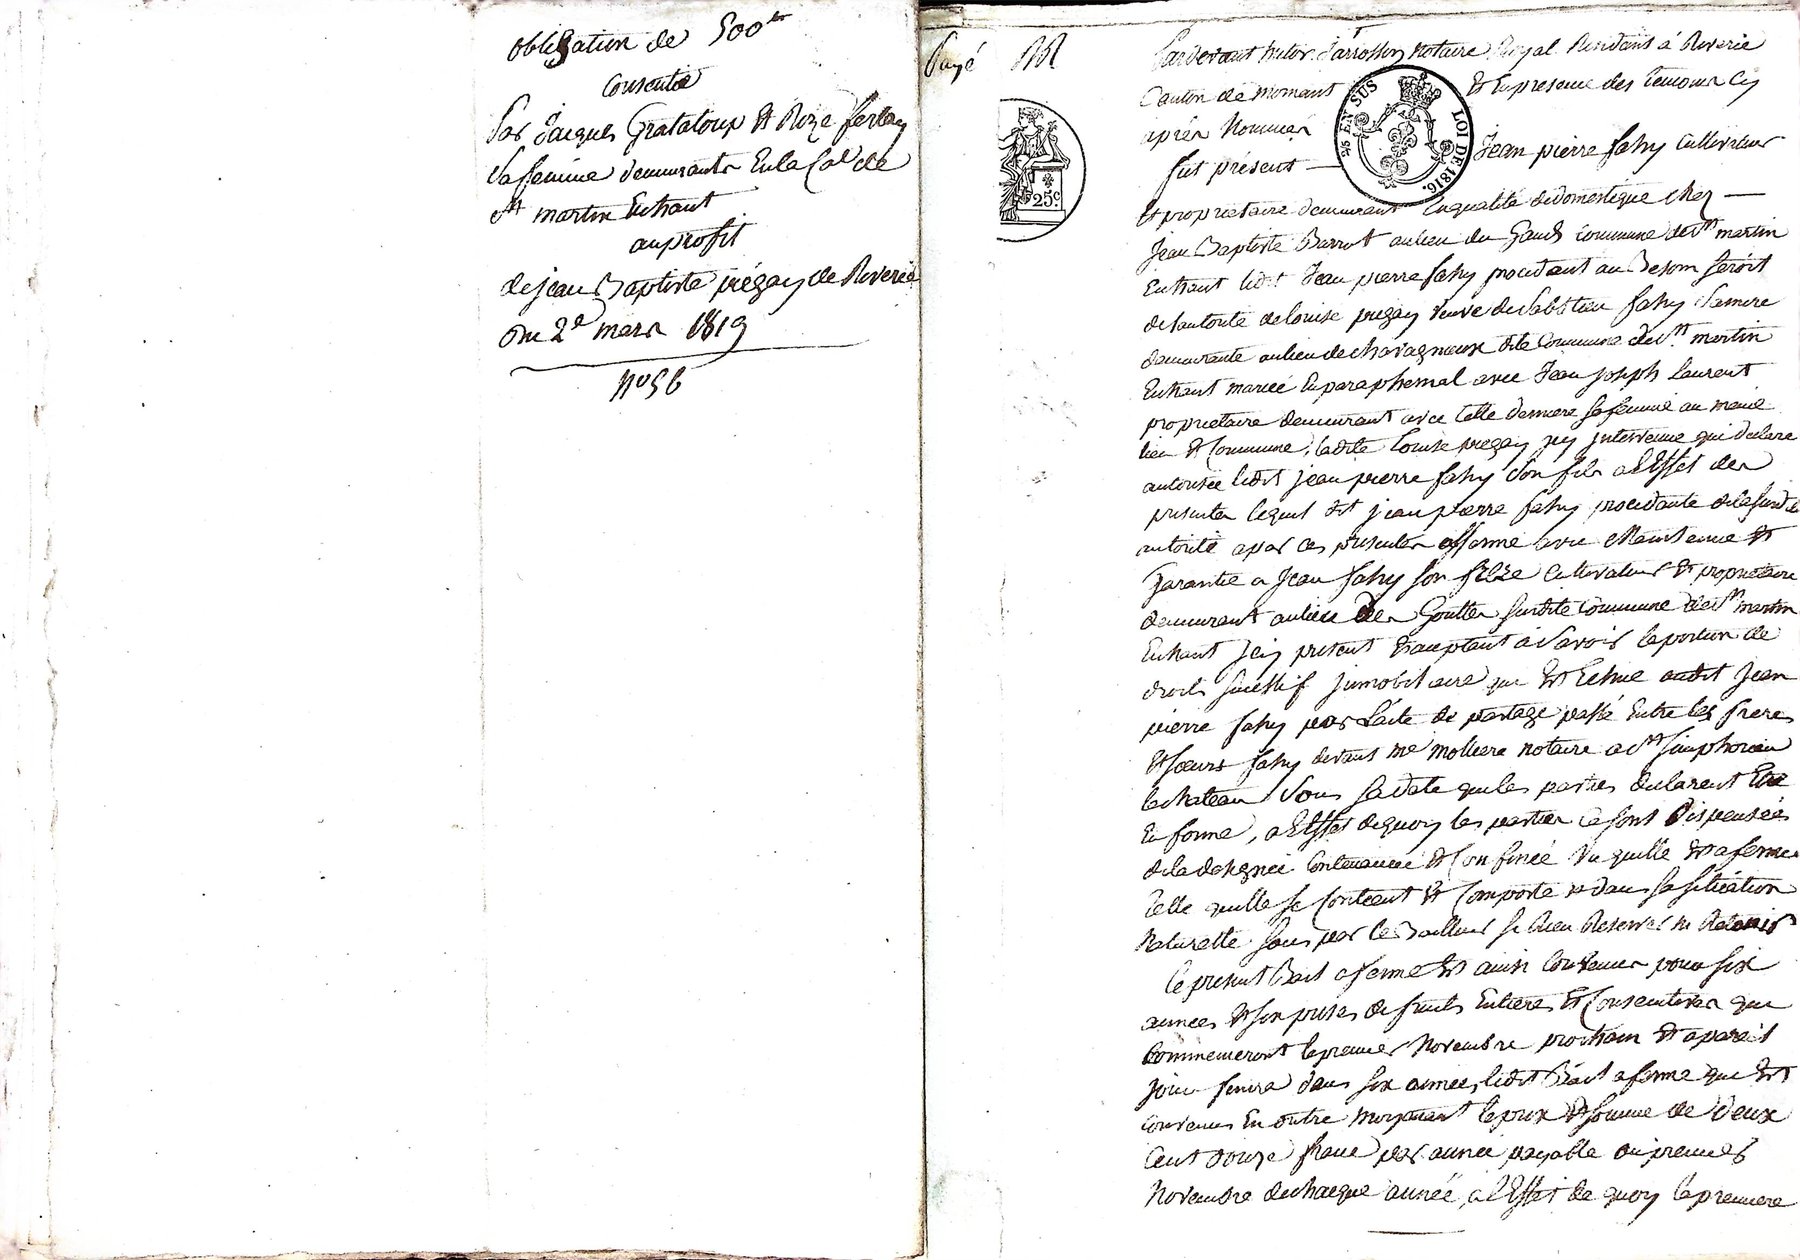 obligation de 500 tt
Consentie
Par Jacques Grataloup et Roze ferlay
Sa femme demeurants En la Coe de
st martin Enhaut
au profit
de jean Baptiste piégay de Riverie
Du 2e mars 1819
no 56
Payé
25 c.
25 EN SUS LOI DE 1816.
Pardevant notaire Royal Residant à Riverie
Canton de mornant Et En presence des temoins Cy
après Nommés
fut présent Jean pierre fahy Cultivateur
Et propriétaire demeurant En qualité de domestique chez
Jean Baptiste Barrot au lieu du commune de st martin
Enhaut ledit Jean pierre fahy procedant au Besoin seroit
de lautorité de louise piegay veuve de fahy Sa mere
demeurante au lieu de chavagneux dite Commune de st martin
Enhaut mariée En paraphernal avec Jean joseph Laurent
propriétaire demeurant avec Cette derniere Sa femme au meme
lieu Et Commune, ladite Louise piegay jcy jntervenue qui declare
autorisée ledit jean pierre fahy Son fils a LEffet des
presentes lequel dit jean pierre fahy procedante de la susd.
autorité a par ces presentes afferme avec Maintenue Et
Garantie a Jean fahy Son frere Cultivateur Et propriétaire
demeurant au lieu des Gouttes susdite Commune de st martin
Enhaut jcy present Et aceptant a Savoir la portion de
droits sucessif jmmobiliaire qui Est Echue audit Jean
pierre fahy par Lacte de partage passé Entre les freres
Et soeurs fahy devant me molliere notaire a st simphorien
le chateau Sous Sa date que les parties declarent Etre
En forme, a LEffet de quoy les parties Ce sont Dispensées
de la designée Contenance Et Confinée Vu quille Est afferme
telle quelle Se Contient Et Comporte et dans Sa situation
Naturelle sans par le Bailleur Se Rien Reserver ni Retenir
Le present Bail a ferme Est ainsi Convenu pour six
années Et six prises de fruits Entieres Et Consecutives qui
Commenceront le premier Novembre prochain Et a pareil
jour finira dans six années, ledit Bail a ferme que Est
convenu En outre moyenant le prix Et somme de deux
Cent douze franc par année payable au premier
Novembre de chaque année, a LEffet de quoy la premiere